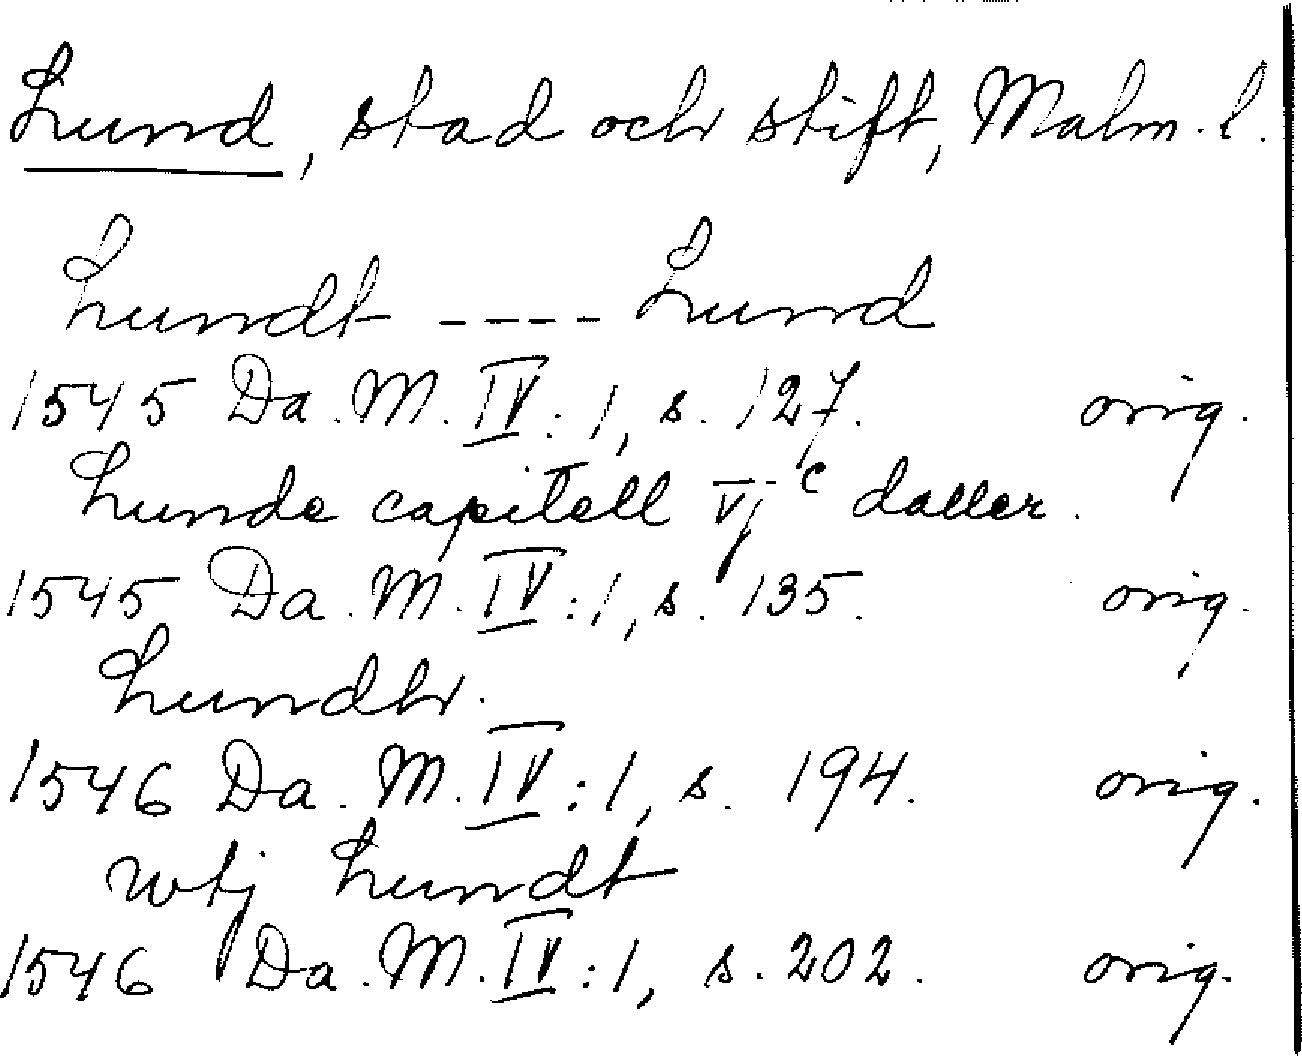 Lund, stad och stift, Malm. l.
Lundt ---- Lund
1545 Da. M. IV:1, s. 127. orig.
Lunde capitell vj c daller.
1545 Da. M. IV:1, s. 135. orig.
Lundh.
1546 Da. M. IV:1, s. 194. orig.
wtj Lundt
1546 Da. M. IV:1, s. 202. orig.